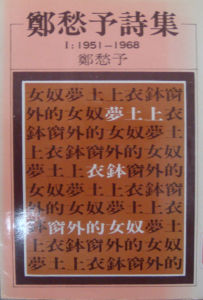 鄭愁予詩集
I：1951－1968
鄭愁予
女奴夢土上衣鉢窗
外的女奴夢土上衣
鉢窗外的女奴夢土
上衣鉢窗外的女奴
夢土上衣鉢窗外的
女奴夢土上衣鉢窗
外的女奴夢土上衣
鉢窗外的女奴夢土
上衣鉢窗外的女奴
夢土上衣鉢窗外的